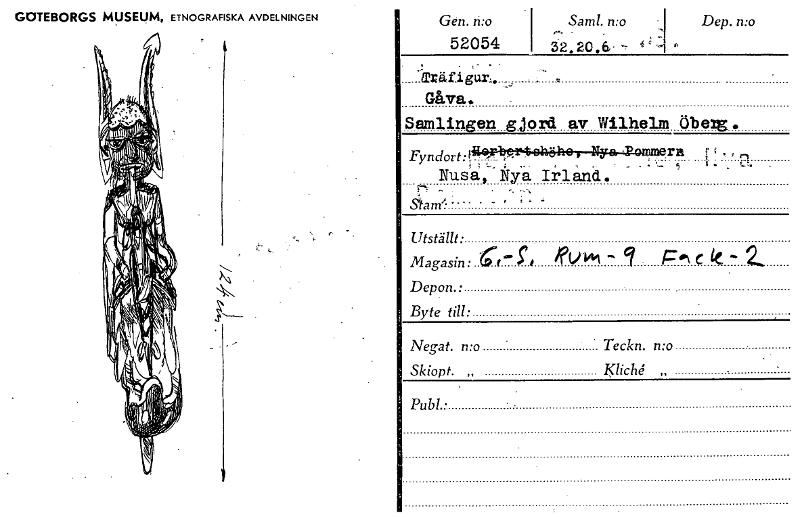 GÖTEBORGS MUSEUM, ETNOGRAFISKA AVDELNINGEN
124 cm.
Gen. n:o Saml. n:o Dep. n:o
52054 32.20.6
Träfigur.
Gåva.
Samlingen gjord av Wilhelm Öberg.
Fyndort: Herbertshöhe, Nya Pommern
Nusa, Nya Irland.
Stam:
Utställt:
Magasin: G.-S. Rum-9 Fack-2
Depon.:
Byte till:
Negat. n:o Teckn. n:o
Skiopt. „ Kliché „
Publ.: